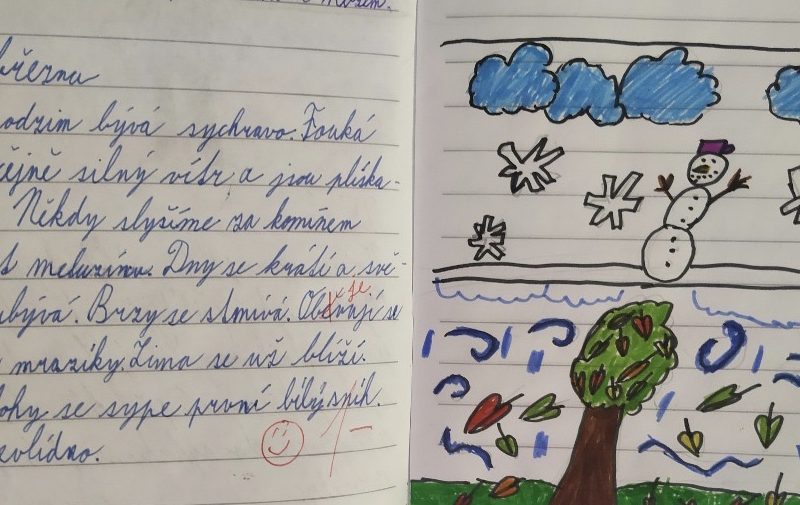 březnu
odzim bývá sychravo. Fouká
ějně silný vítr a jsou plíska-
Někdy slyšíme za komínem
t meluzínu. Dny se krátí a svě-
ubývá. Brzy se stmívá. se
mrazíky. Zima se už blíží.
ohy se sype první bílý sníh.
vlídno.
1-